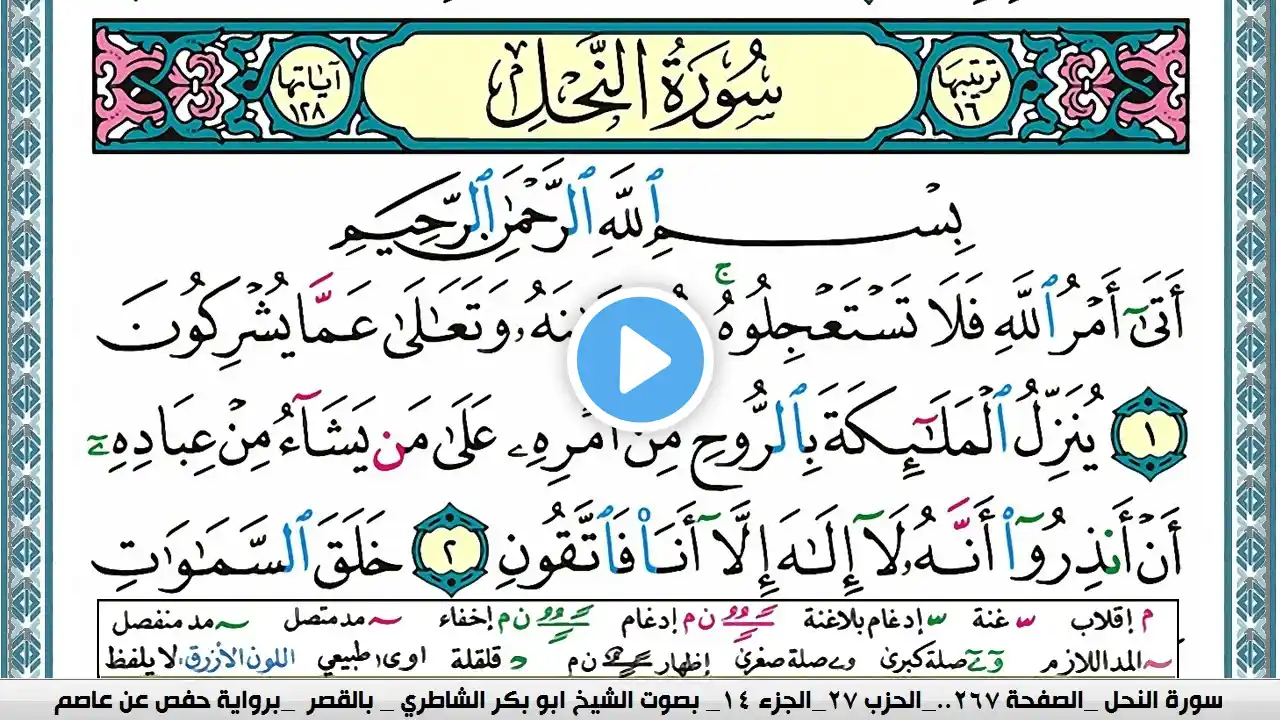 ترتيبها ١٦
سُورَةُ النَّحْلِ
آياتها ١٢٨
بِسْمِ ٱللَّهِ ٱلرَّحْمَٰنِ ٱلرَّحِيمِ
أَتَىٰٓ أَمْرُ ٱللَّهِ فَلَا تَسْتَعْجِلُوهُ ۚ وَتَعَٰلَىٰ عَمَّا يُشْرِكُونَ
١ يُنَزِّلُ ٱلْمَلَٰٓئِكَةَ بِٱلرُّوحِ مِنْ أَمْرِهِۦ عَلَىٰ مَن يَشَآءُ مِنْ عِبَادِهِۦٓ
أَنْ أَنذِرُوٓا۟ أَنَّهُۥ لَآ إِلَٰهَ إِلَّآ أَنَا۠ فَٱتَّقُونِ ٢ خَلَقَ ٱلسَّمَٰوَٰتِ
م إقلاب غنة إدغام بلاغنة ن م إدغام ن م إخفاء مد متصل مد منفصل
المد اللازم صلة كبرى صلة صغرى إظهار ن م قلقلة اوى طبيعي اللون الأزرق: لا يلفظ
سورة النحل _الصفحة ٢٦٧.._الحزب ٢٧_الجزء ١٤_ بصوت الشيخ ابو بكر الشاطري _ بالقصر _برواية حفص عن عاصم